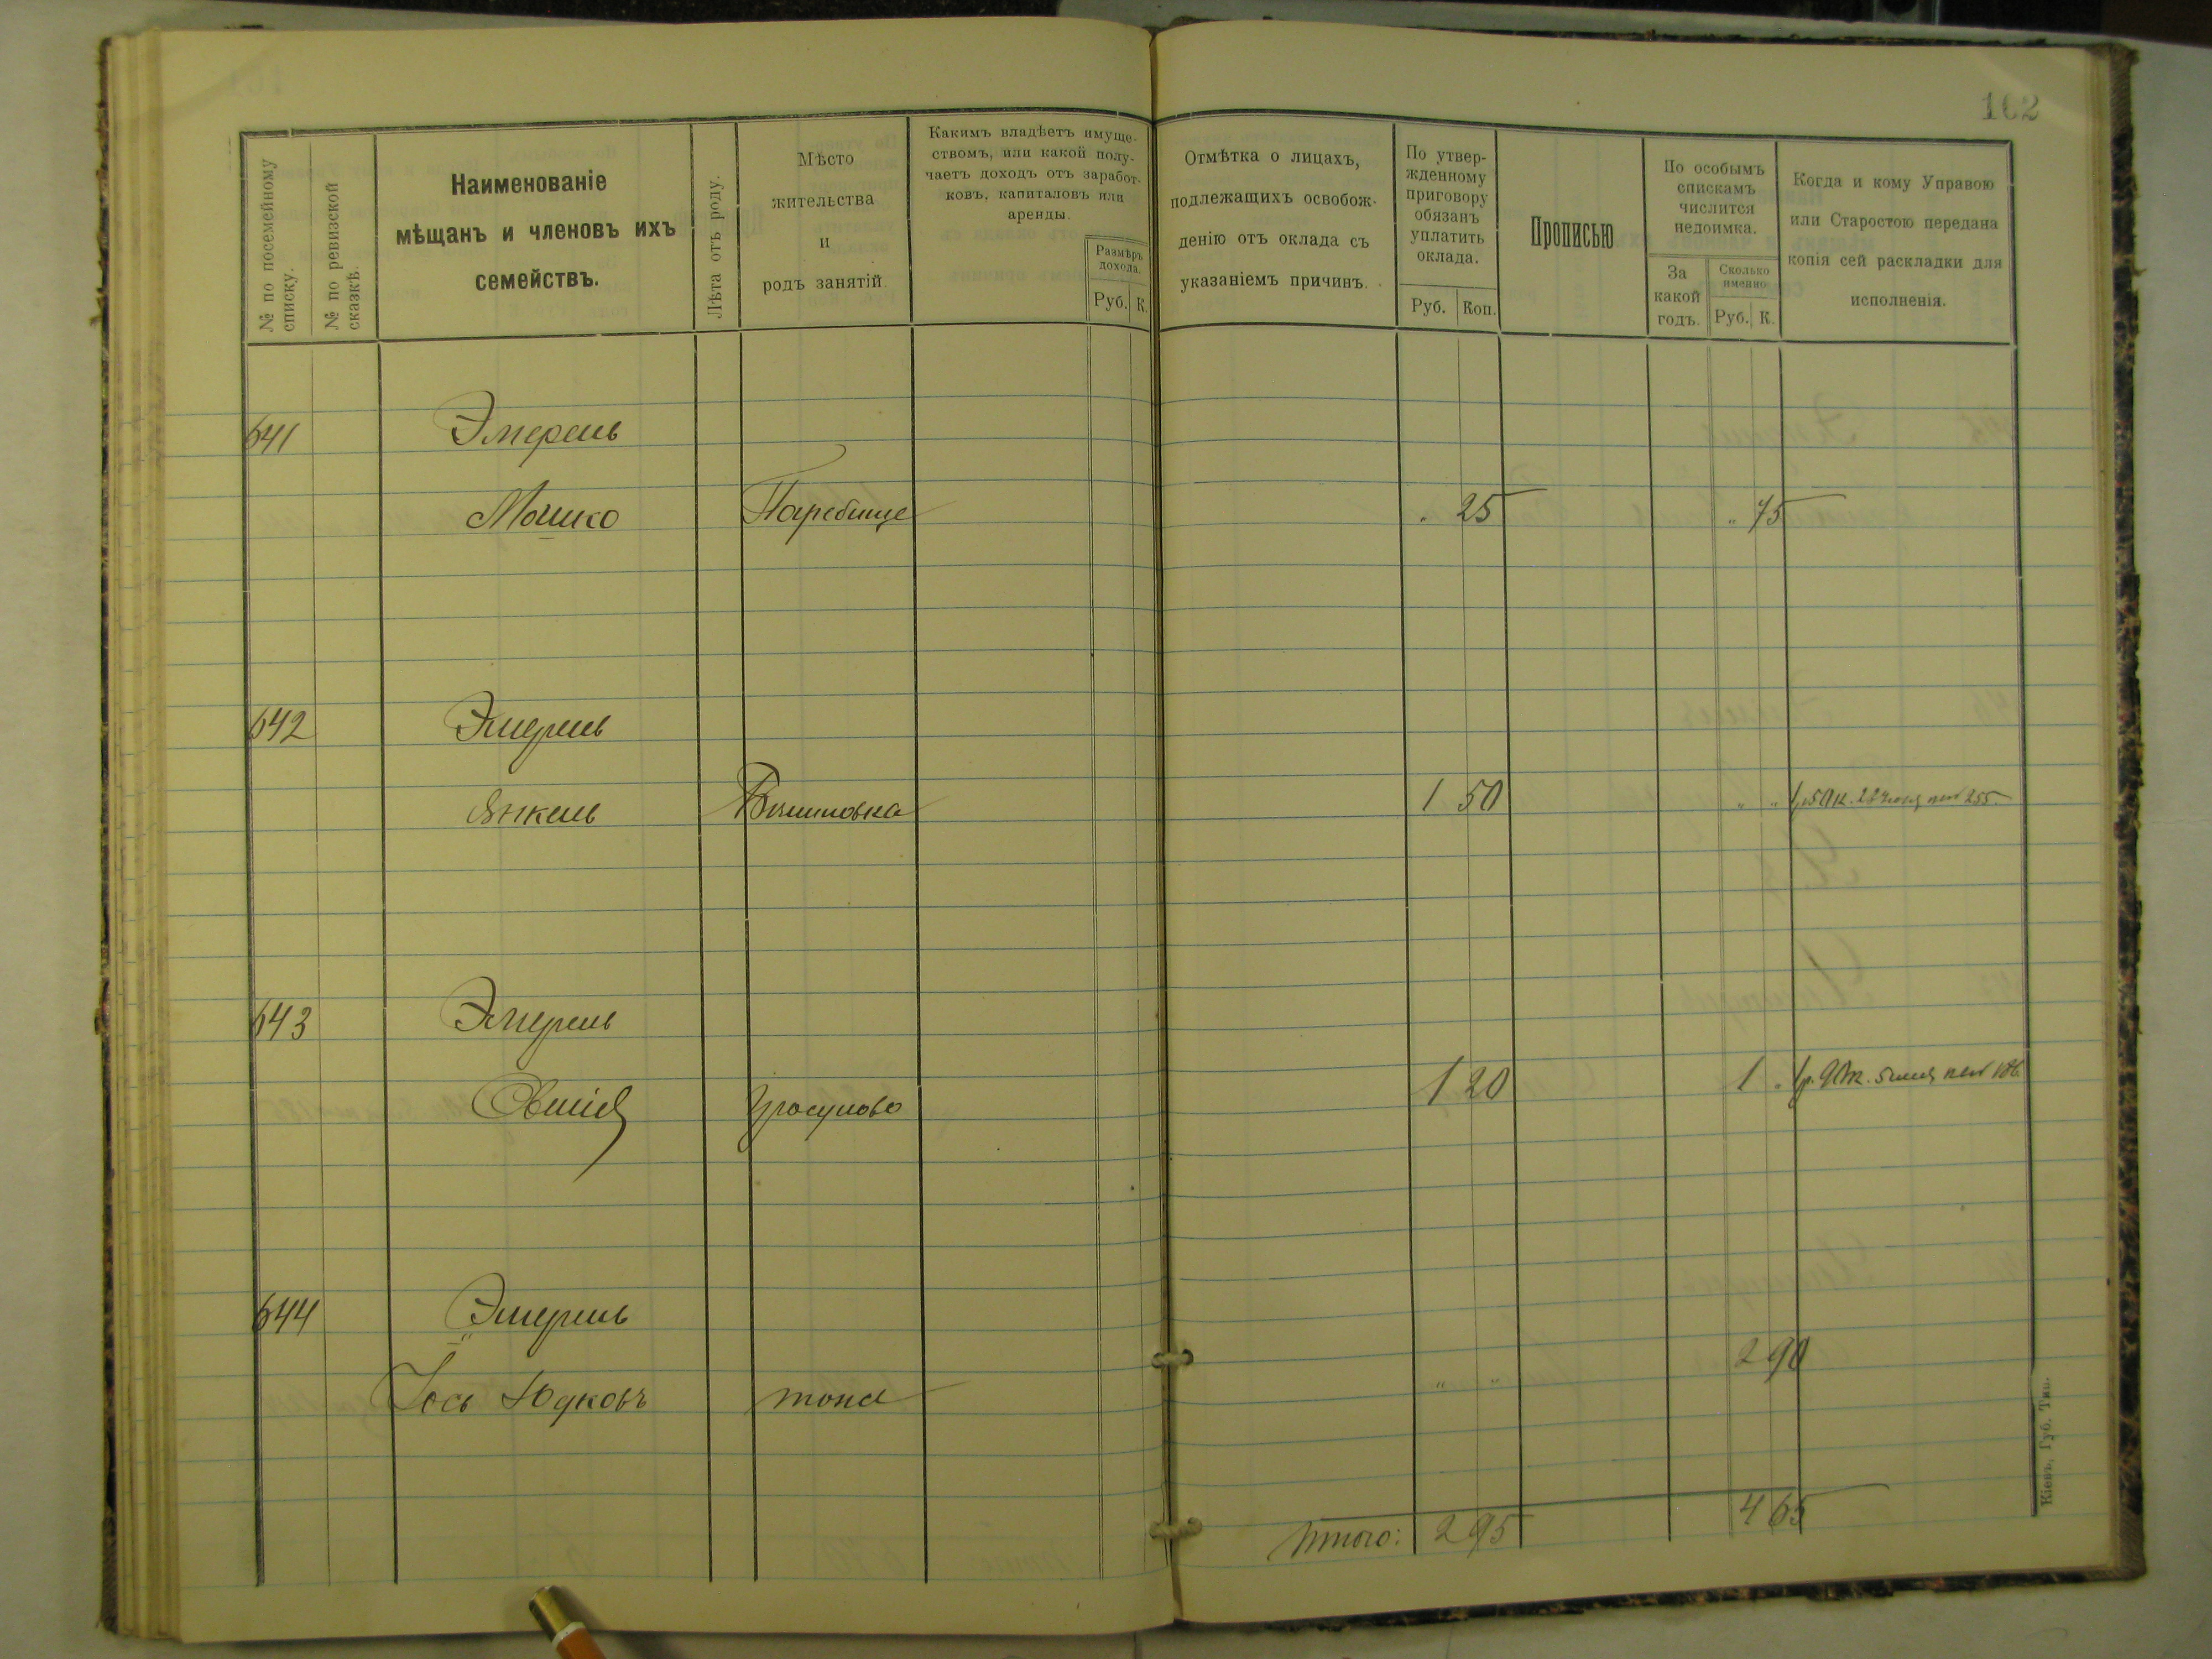 102
№ по посемейному списку.
№ по ревизской сказкѣ.
Наименованіе
мѣщанъ и членовъ ихъ
семействъ.
Лѣта отъ роду.
Мѣсто
жительства
и
родъ занятій.
Какимъ владѣетъ имуще-
ствомъ, или какой полу-
чаетъ доходъ отъ заработ-
ковъ, капиталовъ или
аренды.
Размѣръ
дохода.
Руб. К.
Отмѣтка о лицахъ,
подлежащихъ освобож-
денію отъ оклада съ
указаніемъ причинъ.
По утвер-
жденному
приговору
обязанъ
уплатить
оклада.
Руб. Коп.
Прописью
По особымъ
спискамъ
числится
недоимка.
За
какой
годъ.
Сколько
именно
Руб. К.
Когда и кому Управою
или Старостою передана
копія сей раскладки для
исполненія.
641 Эмерель
Мошко Погребище " 25 " 75
642 Эмерель
Янкель 1 50 " "
643 Эмерель
1 20 1 "
644 Эмерель
Іось Юдковъ тоже " " 2 90
Итого: 2 95 4 65
Кіевъ, Губ. Тип.